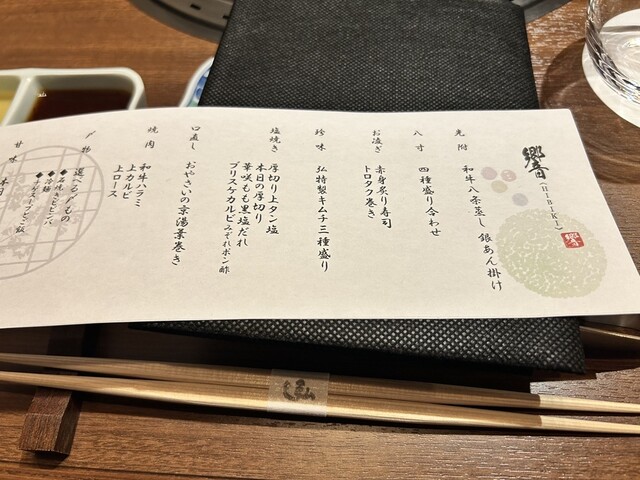 響
(HIBIKI)
響
先附
和牛八条蒸し 銀あん掛け
八寸
四種盛り合わせ
お凌ぎ
赤身炙り寿司
トロタク巻き
珍味
弘特製キムチ三種盛り
塩焼き
厚切り上タン塩
本日の厚切り
華咲もも黒塩だれ
ブリスケカルビみぞれポン酢
口直し
おやさいの京湯葉巻き
焼肉
和牛ハラミ
上カルビ
上ロース
〆物
選べる〆もの
◆石焼きビビンバ
◆冷麺
甘味
本日
弘